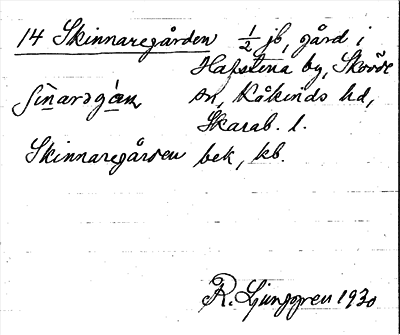 14 Skinnaregården 1/2 jb, gård i
Hafstena by, Skövde
sn, Kåkinds hd,
Skarab. l.
Skinnaregården bek, kb.
R. Ljunggren 1930